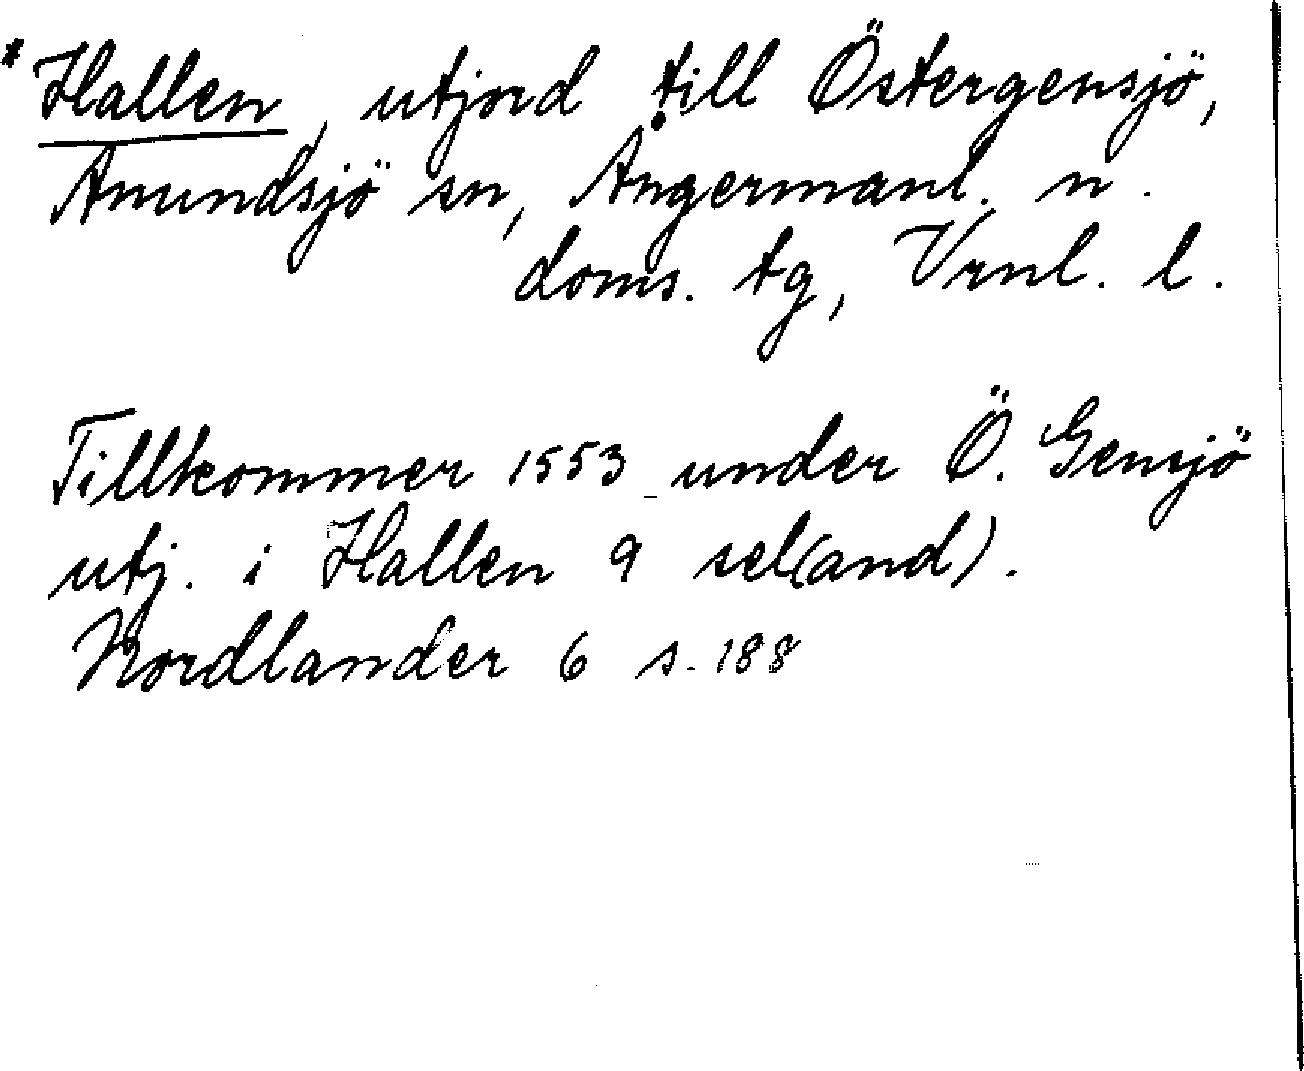 *Hallen, utjord till Östergensjö,
Anundsjö sn, Ångermanl. n.
doms. tg, Vrnl. l.
Tillkommer 1553 under Ö. Gensjö
utj. i Hallen 9 sel(and).
Nordlander 6 s. 188